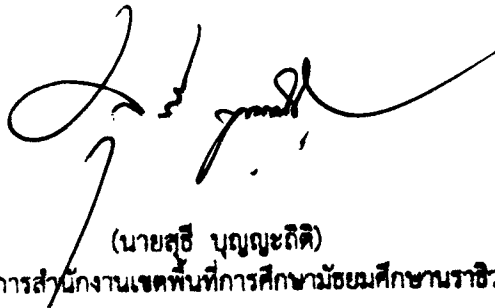 (นายสุธี บุญญะถิติ)
การสำนักงานเขตพื้นที่การศึกษามัธยมศึกษานราธิว